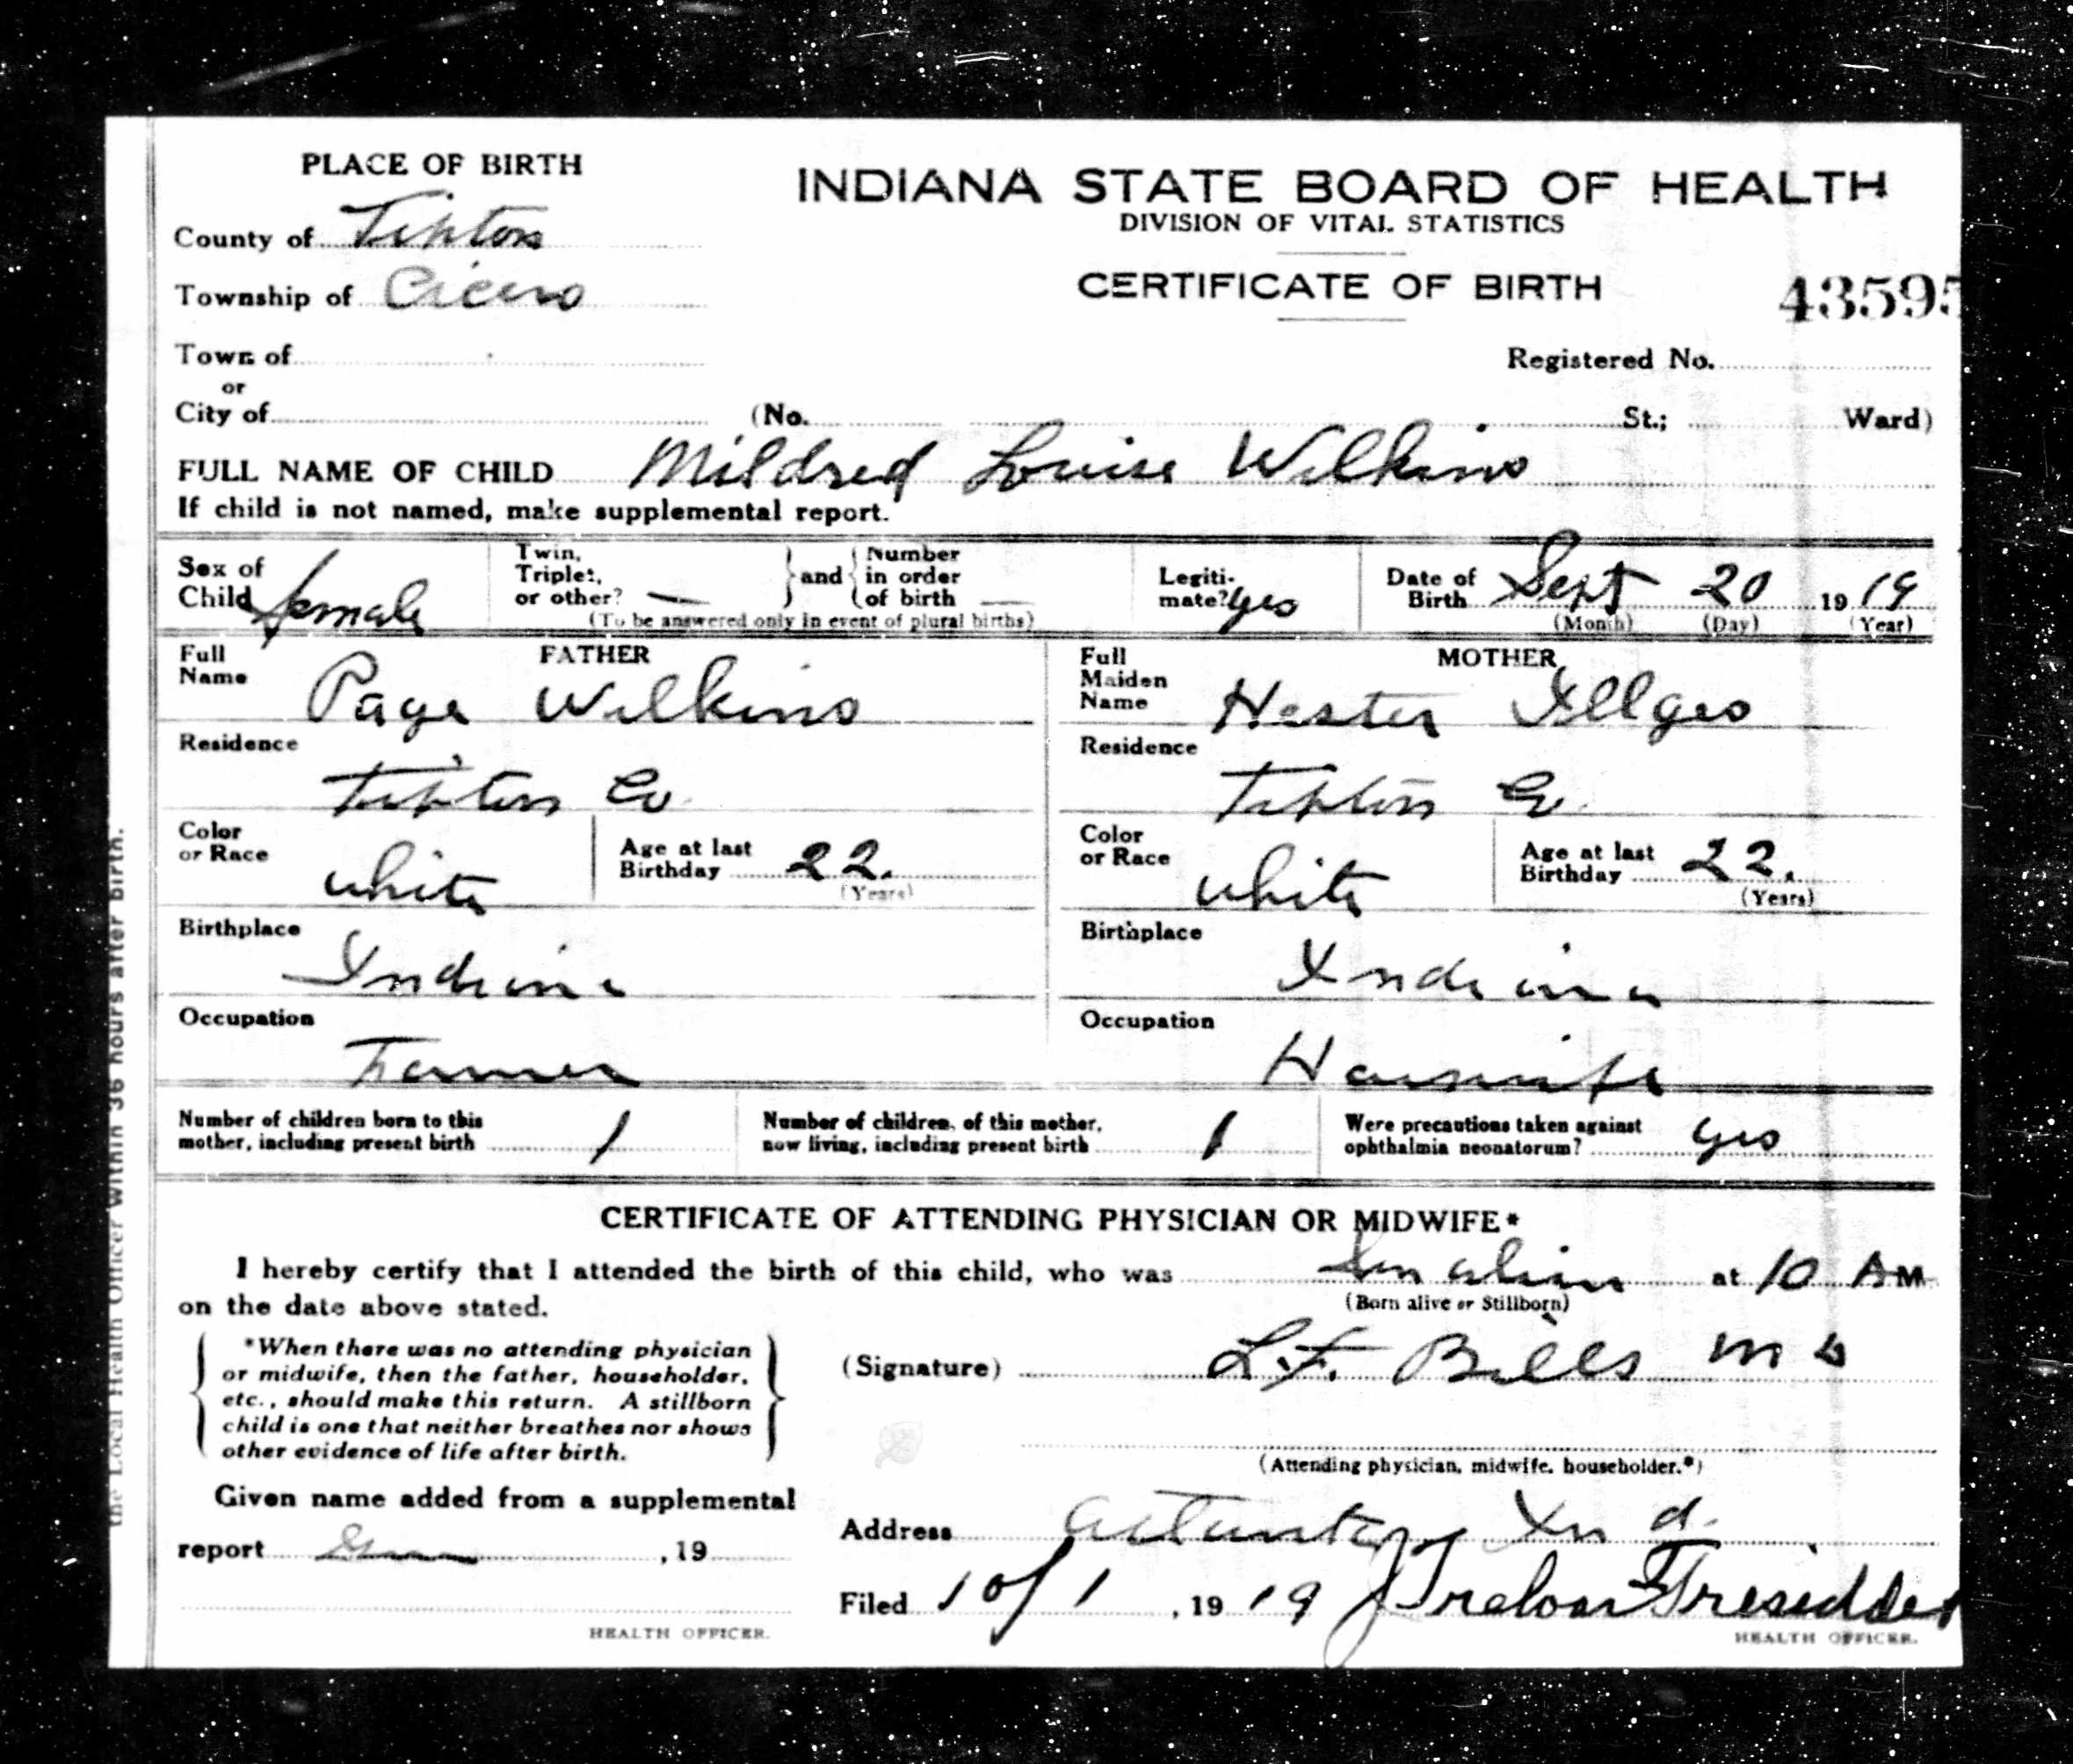 PLACE OF BIRTH
INDIANA STATE BOARD OF HEALTH
DIVISION OF VITAL STATISTICS
CERTIFICATE OF BIRTH
43595
County of Tipton
Township of Cicero
Town of
or
City of (No. St.; Ward)
Registered No.
FULL NAME OF CHILD Mildred Louise Wilkins
If child is not named, make supplemental report.
Sex of Child female
Twin, Triplet, or other? —
and
Number in order of birth —
(To be answered only in event of plural births)
Legitimate? yes
Date of Birth Sept 20 1919
(Month) (Day) (Year)
FATHER
Full Name Page Wilkins
Residence
Tipton Co
Color or Race
white
Age at last Birthday 22.
(Years)
Birthplace
Indiana
Occupation
Farmer
MOTHER
Full Maiden Name Hester Illges
Residence
Tipton Co.
Color or Race
white
Age at last Birthday 22.
(Years)
Birthplace
Indiana
Occupation
Housewife
Number of children born to this mother, including present birth 1
Number of children, of this mother, now living, including present birth 1
Were precautions taken against ophthalmia neonatorum? yes
CERTIFICATE OF ATTENDING PHYSICIAN OR MIDWIFE*
I hereby certify that I attended the birth of this child, who was born alive at 10 AM
(Born alive or Stillborn)
on the date above stated.
*When there was no attending physician
or midwife, then the father, householder,
etc., should make this return. A stillborn
child is one that neither breathes nor shows
other evidence of life after birth.
(Signature) L.F. Bills MD
(Attending physician, midwife, householder.*)
Given name added from a supplemental
report , 19
HEALTH OFFICER.
Address Ind.
Filed 10/1, 1919 J Treloar Tresidder
HEALTH OFFICER.
the Local Health Officer within 36 hours after birth.